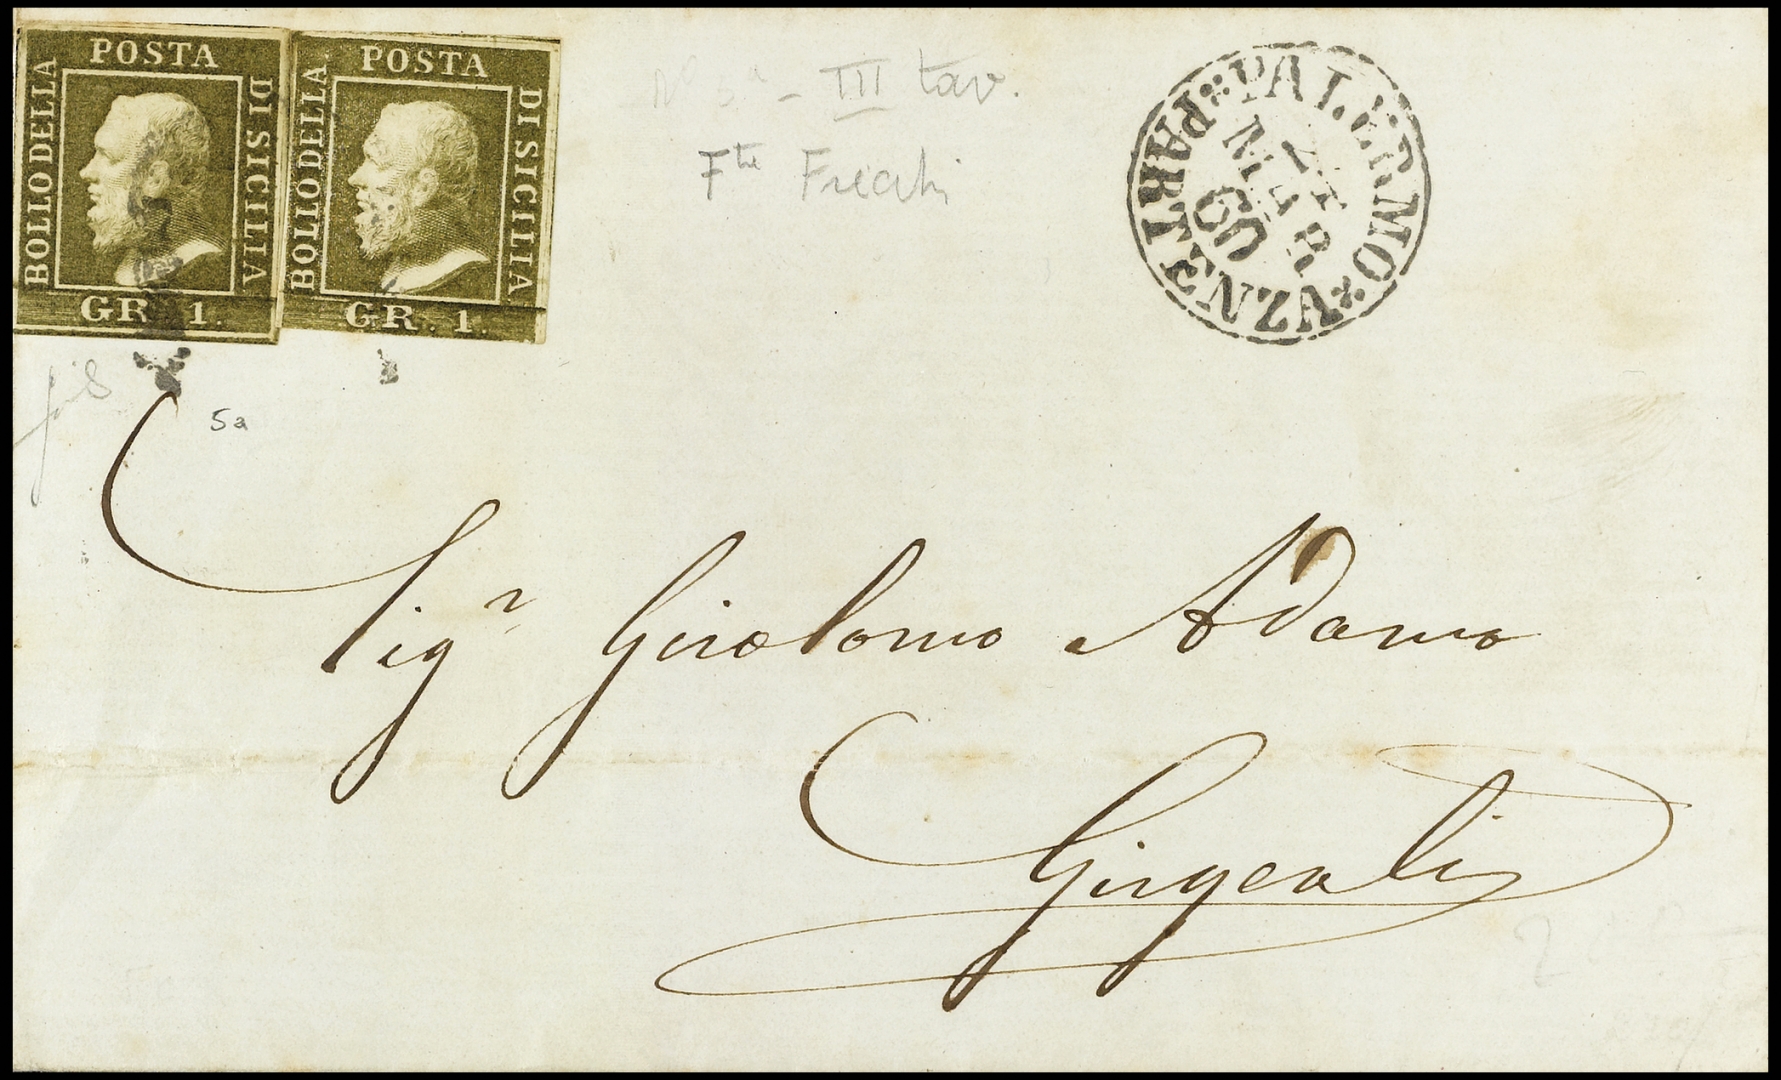 POSTA
BOLLO DELLA
DI SICILIA
GR. 1.
POSTA
BOLLO DELLA
DI SICILIA
GR. 1.
III tav.
PALERMO
PARTENZA
MAR
60
5a
Sigr Girolamo Adamo
Girgenti